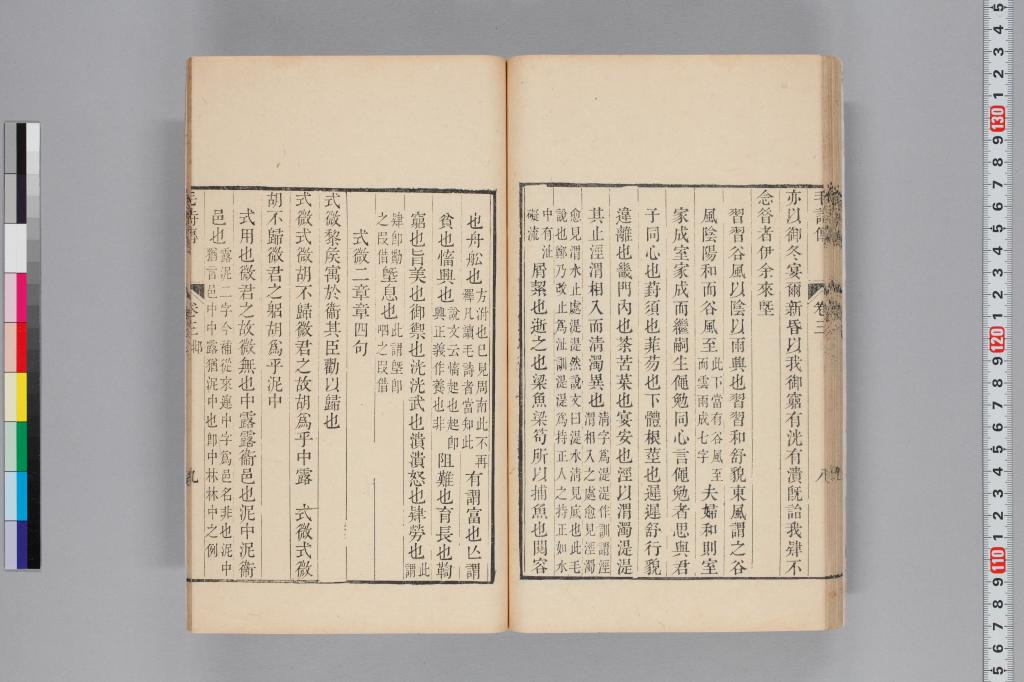 亦以御冬宴爾新昏以我御窮有洸有潰旣詒我肄不
念昔者伊余來墍
習習谷風以陰以雨興也習習和舒貌東風謂之谷
風陰陽和而谷風至此下當有谷風至而雲雨成七字夫婦和則室
家成室家成而繼嗣生黽勉同心言黽勉者思與君
子同心也葑須也菲芴也下體根莖也遲遲舒行貌
違離也畿門內也荼苦菜也宴安也涇以渭濁湜湜
其止涇渭相入而清濁異也清字爲湜湜作訓謂涇渭相入之處愈見涇濁
愈見渭水止處湜湜然說文曰湜水清見底也此毛
說也鄭乃改止爲沚訓湜湜爲持正人之持正如水
中有沚礙流屑絜也逝之也梁魚梁笱所以捕魚也閱容
毛詩傳 卷三 八
也舟舩也方泭也已見周南此不再釋凡讀毛詩者當知此有謂富也亾謂
貧也慉興也說文云慉起也起卽興正義作養也非阻難也育長也鞫
窮也旨美也御禦也洸洸武也潰潰怒也肄勞也此謂
肄卽勩之叚借墍息也此謂墍卽呬之叚借
式微二章章四句
式微黎矦寓於衞其臣勸以歸也
式微式微胡不歸微君之故胡爲乎中露 式微式微
胡不歸微君之躳胡爲乎泥中
式用也微君之故微無也中露露衞邑也泥中泥衞
邑也露泥二字今補從來連中字爲邑名非也泥中猶言邑中中露猶泥中也卽中林林中之例
卷三 邶 九